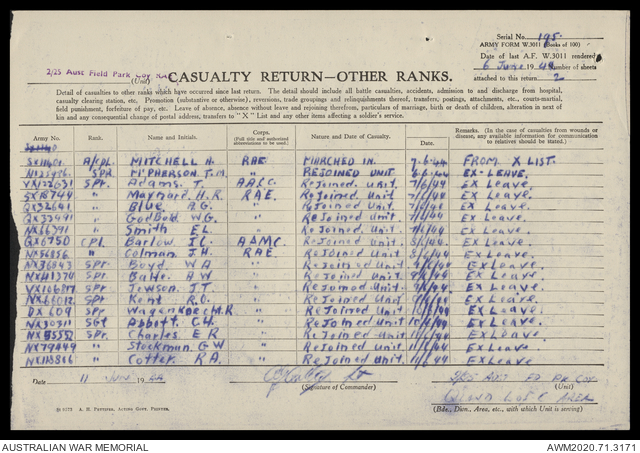 Serial No. 195.
ARMY FORM W.3011 (Books of 100)
Date of last A.F. W.3011 rendered
6 June 1944 Number of sheets
attached to this return 2
2/25 Aust Field Park Coy RAE
(Unit)
CASUALTY RETURN—OTHER RANKS.
Detail of casualties to other ranks which have occurred since last return. The detail should include all battle casualties, accidents, admission to and discharge from hospital,
casualty clearing station, etc. Promotion (substantive or otherwise), reversions, trade groupings and relinquishments thereof, transfers, postings, attachments, etc., courts-martial,
field punishment, forfeiture of pay, etc. Leave of absence, absence without leave and rejoining therefrom, particulars of marriage, birth or death of children, alteration in next of
kin and any consequential change of postal address, transfers to "X" List and any other items affecting a soldier's service.
Army No. Rank. Name and Initials. Corps. (Full title and authorized abbreviations to be used). Nature and Date of Casualty. Date. Remarks. (In the case of casualties from wounds or disease, any available information for communication to relatives should be stated.)
A/Cpl. MITCHELL H. RAE. MARCHED IN. 7-6-44 FROM X LIST.
SPR McPHERSON. T.M. " REJOINED UNIT. 6-6-44 EX-LEAVE.
VX122631 Spr. Adams. T. AASC. ReJoined. Unit. 7/6/44 Ex Leave.
SX18744 " Maynard. H.R. RAE. ReJoined Unit. 7/6/44 Ex Leave.
QX32641 " Blue A.G. " ReJoined. Unit. 7/6/44 Ex Leave.
QX32491 " Godbold W.G. " ReJoined Unit. 7/6/44 Ex Leave.
NX66791 " Smith E.L. " ReJoined. Unit. 7/6/44 Ex Leave.
QX6750 Cpl. Barlow. J.C. AAMC. ReJoined Unit. 8/6/44 Ex Leave.
NX56856 " Colman J.H. RAE. ReJoined Unit. 8/6/44 Ex Leave.
NX36843 Spr. Boyd. W.A " ReJoined Unit 9/6/44 Ex Leave.
Spr. A.W " ReJoined Unit. Ex Leave.
Spr. Jewson. J.T. " ReJoined Unit. Ex Leave.
Spr Kent R.O. " ReJoined Unit Ex Leave.
DX609 Spr Wagenknecht M.R. " ReJoined Unit Ex Leave.
NX30311 Sgt Abbott C.H. " ReJoined Unit Ex Leave.
Spr. Charles. E R " ReJoined Unit 11/6/44 Ex Leave.
NX79849 " Stockman. G W " ReJoined Unit 11/6/44 Ex Leave.
" Cotter. R.A. " ReJoined Unit. 11/6/44 Ex Leave
Date 11 JUN 1944
(Signature of Commander)
2/25 AUST FD PK COY
(Unit)
L OF C AREA
(Bde., Divn., Area, etc., with which Unit is serving)
A. H. PETTIFER, ACTING GOVT. PRINTER.
AUSTRALIAN WAR MEMORIAL
AWM2020.71.3171